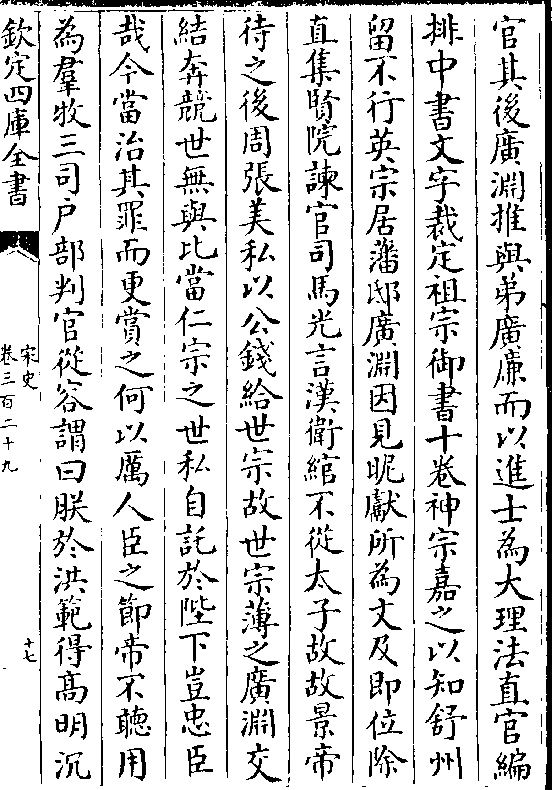 官其後廣淵推與弟廣廉而以進士為大理法直官編
排中書文字裁定祖宗御書十卷神宗嘉之以知舒州
留不行英宗居藩邸廣淵因見昵獻所為文及即位除
直集賢院諫官司馬光言漢衛綰不從太子故故景帝
待之後周張美私以公錢給世宗故世宗薄之廣淵交
結奔競世無與比當仁宗之世私自託於陛下豈忠臣
哉今當治其罪而更賞之何以厲人臣之節帝不聽用
為羣牧三司户部判官從容謂曰朕於洪範得髙明沉
欽定四庫全書
宋史
卷三百二十九
十七